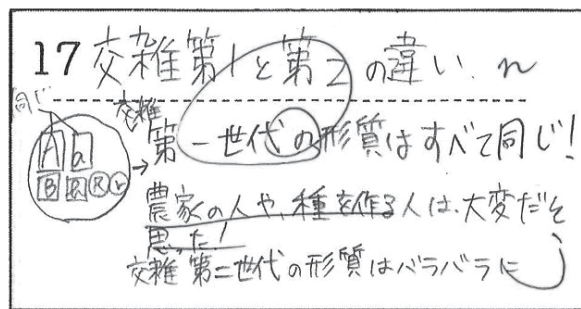 17 交雑第1と第2の違い. n
同じ
交雑
A a
→第一世代の形質はすべて同じ!
B R R r
農家の人や、種を作る人は、大変だと
思った!
交雑第二世代の形質はバラバラに